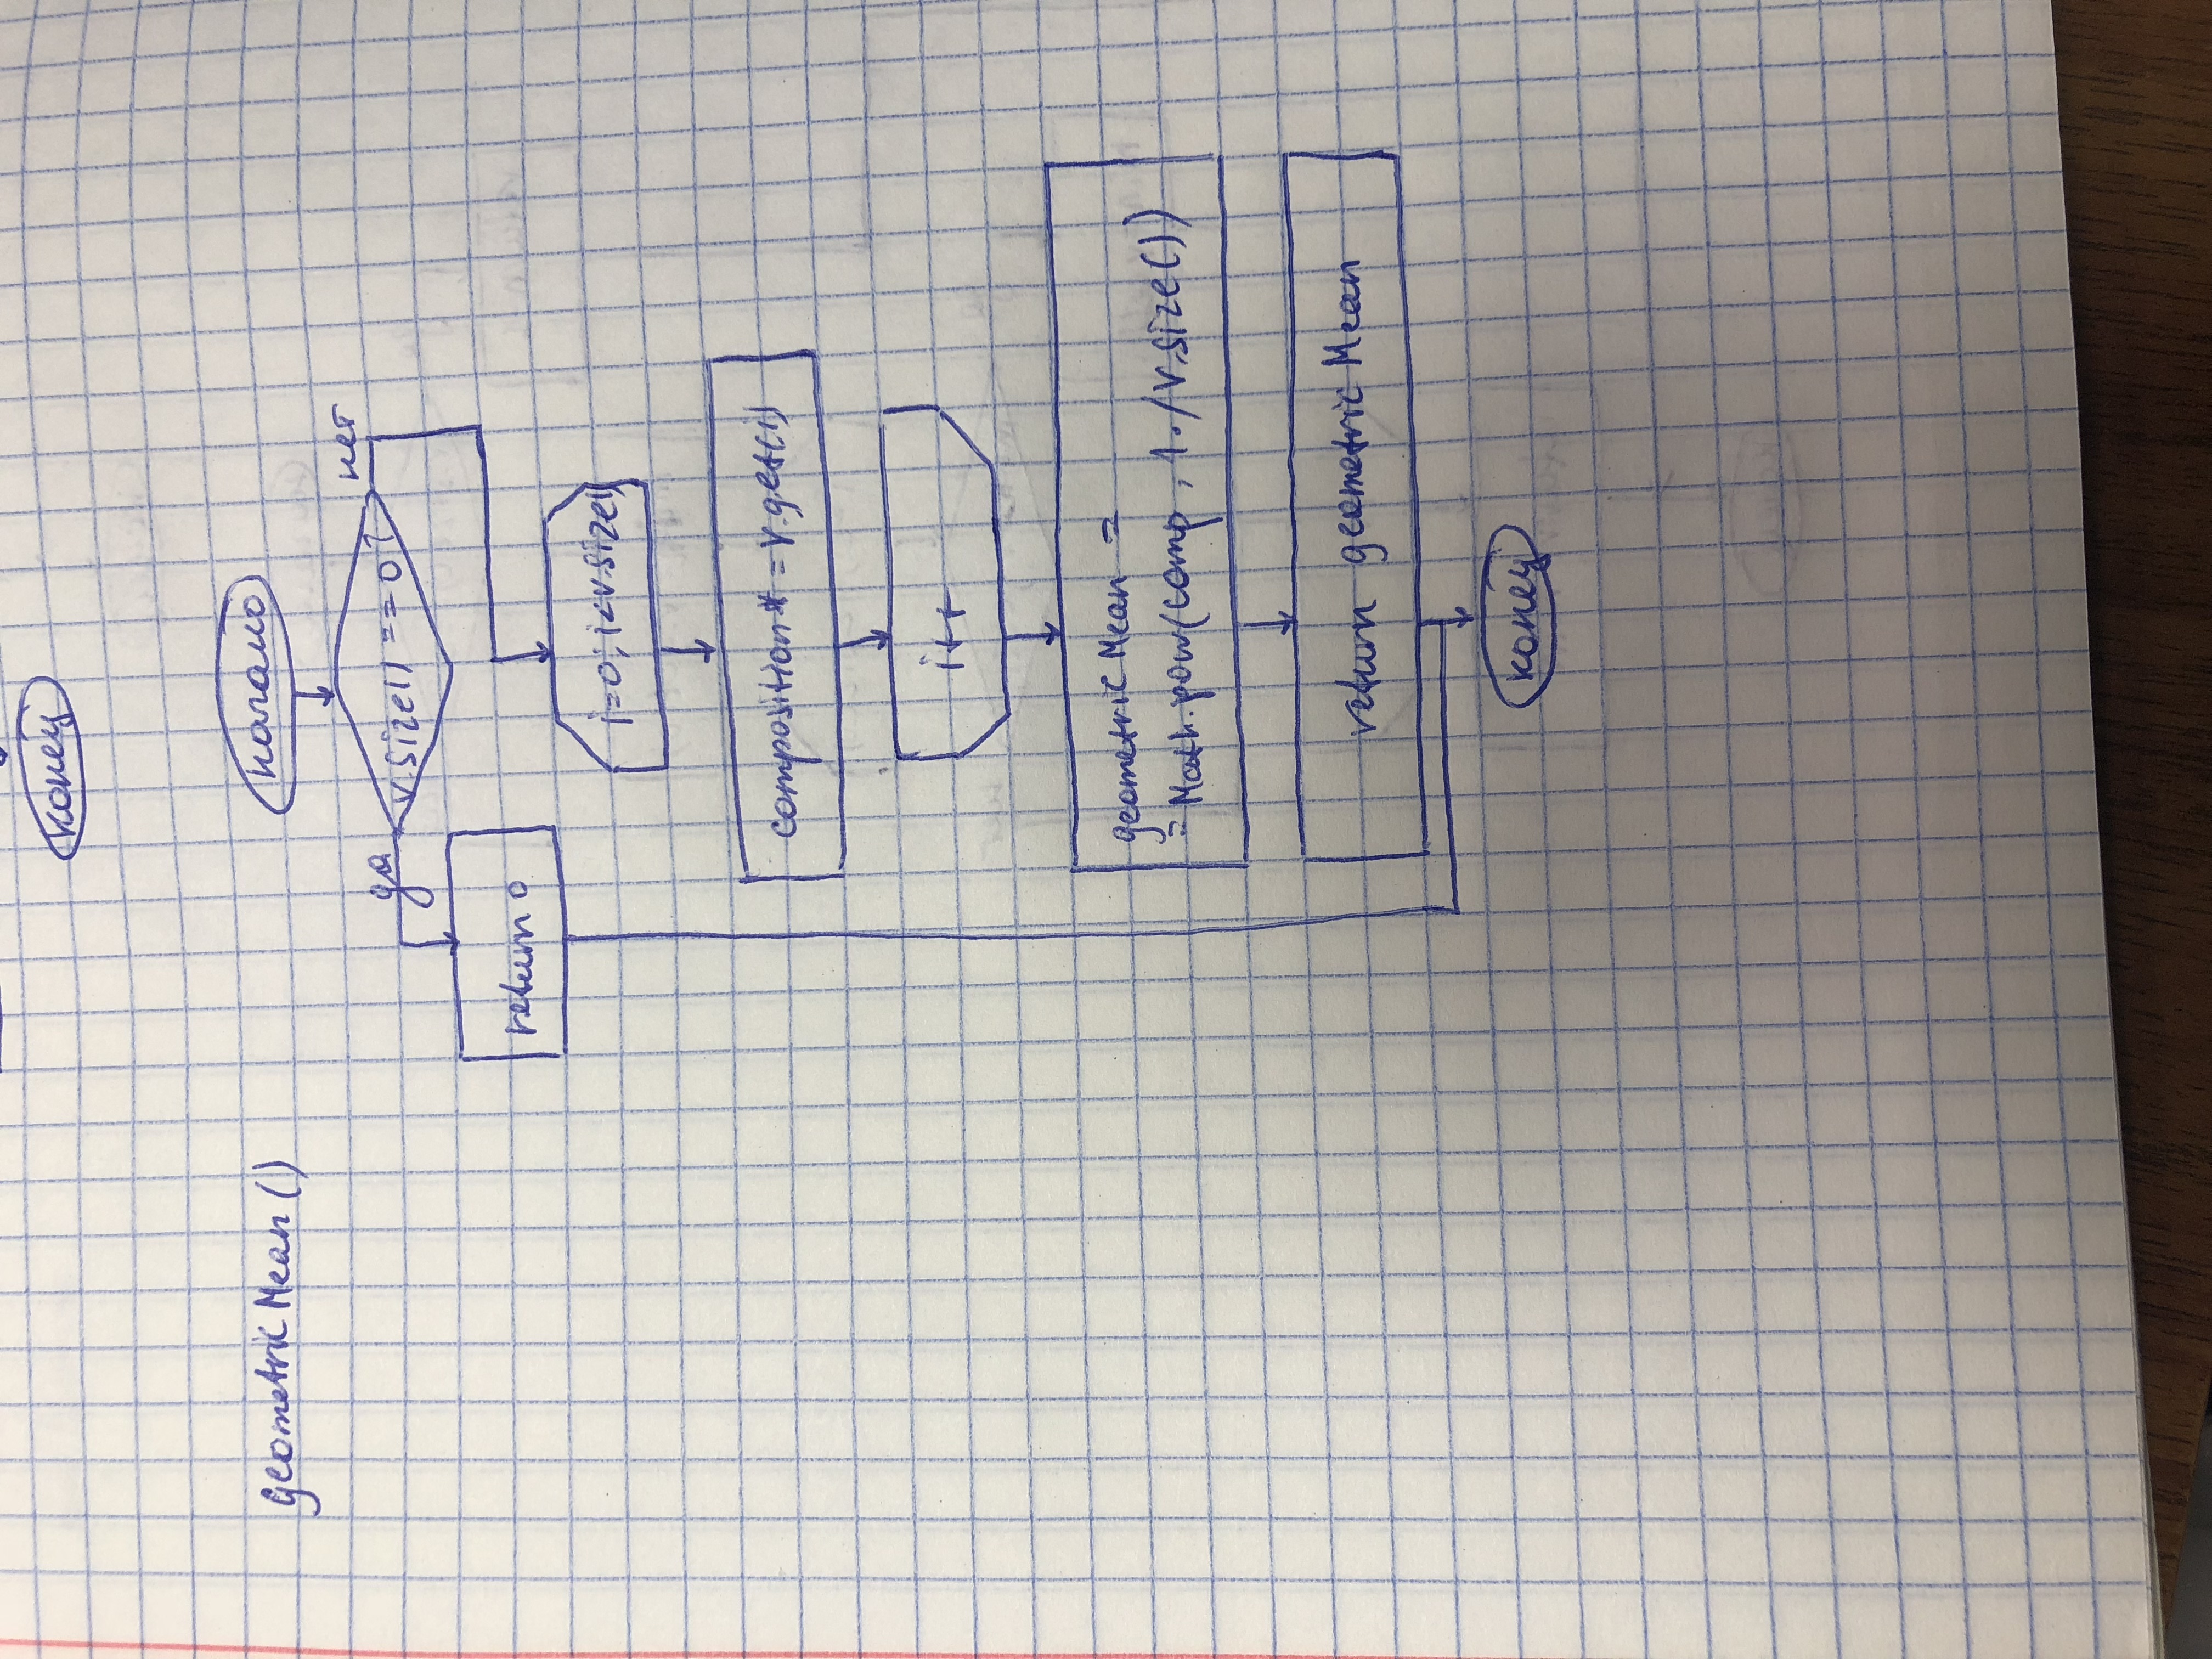 конец
geometricMean()
начало
v.size() == 0?
да
нет
return 0
i=0; i<v.size()
composition* = v.get(i)
i++
geometricMean =
= Math.pow(comp, 1./v.size())
return geometricMean
конец